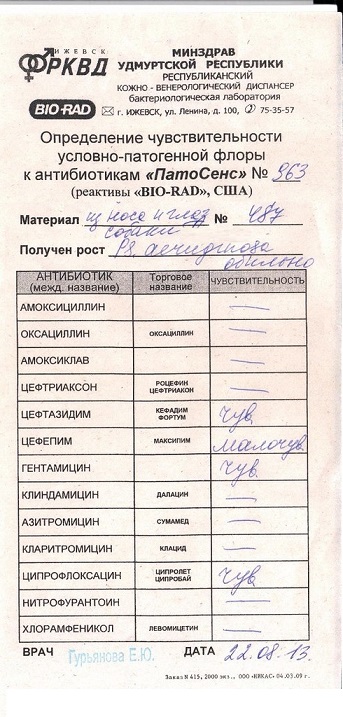 ИЖЕВСК
РКВД
МИНЗДРАВ
УДМУРТСКОЙ РЕСПУБЛИКИ
РЕСПУБЛИКАНСКИЙ
КОЖНО - ВЕНЕРОЛОГИЧЕСКИЙ ДИСПАНСЕР
бактериологическая лаборатория
BIO-RAD г. ИЖЕВСК, ул. Ленина, д. 100, 75-35-57
Определение чувствительности
условно-патогенной флоры
к антибиотикам «ПатоСенс» № 963
(реактивы «BIO-RAD», США)
Материал из носа и глаз № 487
собаки
Получен рост Ps. aeruginosa
обильно
АНТИБИОТИК (межд. название) Торговое название ЧУВСТВИТЕЛЬНОСТЬ
АМОКСИЦИЛЛИН —
ОКСАЦИЛЛИН ОКСАЦИЛЛИН —
АМОКСИКЛАВ —
ЦЕФТРИАКСОН РОЦЕФИН ЦЕФТРИАКОН —
ЦЕФТАЗИДИМ КЕФАДИМ ФОРТУМ чув
ЦЕФЕПИМ МАКСИПИМ малочув
ГЕНТАМИЦИН чув
КЛИНДАМИЦИН ДАЛАЦИН —
АЗИТРОМИЦИН СУМАМЕД —
КЛАРИТРОМИЦИН КЛАЦИД —
ЦИПРОФЛОКСАЦИН ЦИПРОЛЕТ ЦИПРОБАЙ чув
НИТРОФУРАНТОИН —
ХЛОРАМФЕНИКОЛ ЛЕВОМИЦЕТИН —
ВРАЧ Гурьянова Е.Ю. ДАТА 22.08.13.
Заказ N 415, 2000 экз., ООО «НИКАС» 04.03.09 г.